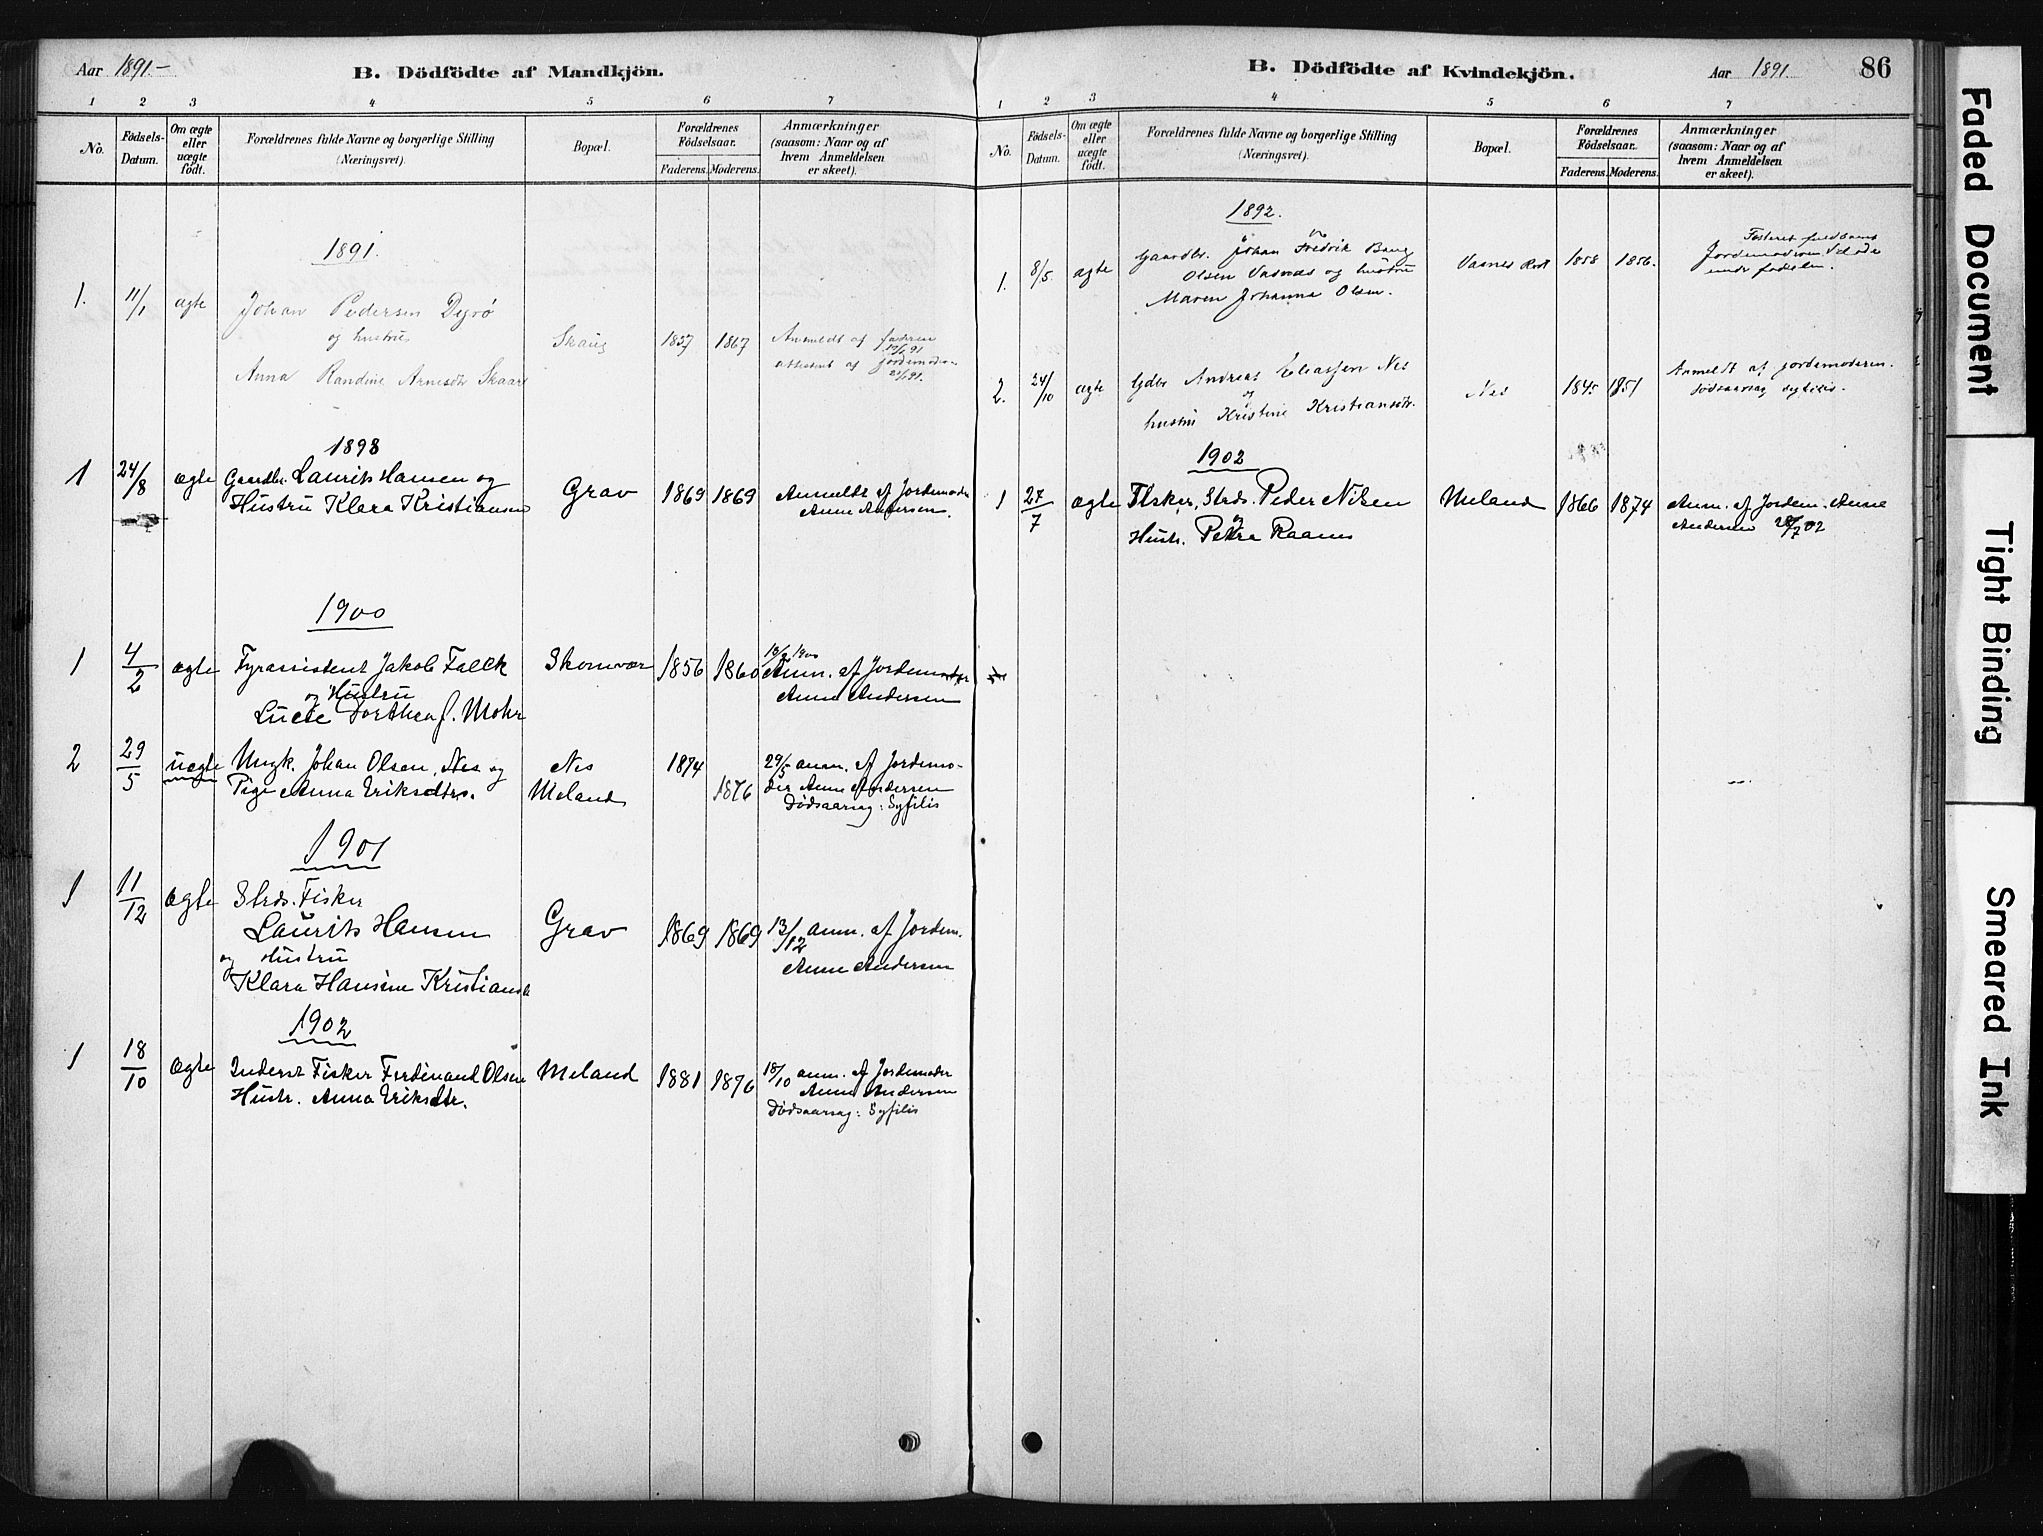 Aar 1891-
B. Dödfödte af Mandkjön.
1 2 3 4 5 6 7
No.
Födsels-
Datum.
Om ægte
eller
uægte
födt.
Forældrenes fulde Navne og borgerlige Stilling
(Næringsvei).
Bopæl.
Forældrenes
Födselsaar.
Faderens. Moderens.
Anmærkninger
(saasom: Naar og af
hvem Anmeldelsen
er skeet).
1891.
1. 11/1 ægte Johan Pedersen Dyrö
og hustru
Skaug 1857 1867 Anmeldt af faderen
Anna Randine Arnesdtr Skaar
attesteret af jordemoderen
1898
1 24/8 ægte Gaardbr. Laurits Hansen og
Hustru Klara Kristiansen
Grav 1869 1869 Anmeldt af Jordemoder
Anne Andersen.
1900
1 4/2 ægte Fyrassistent Jakob Falck
og Hustru
Lucie Dorthea f. Mohr
Skomvær 1856 1860 1900
Anm. af Jordemoder
Anne Andersen
2 29/5 uægte Ungk. Johan Olsen, Nes og
Pige Anna Eriksdtr.
Nes
Meland
1874
1876
29/5 anm. af Jordemo-
der Anne Andersen
Dødsaarsag: Syfilis
1901
1 11/12 ægte Strds. Fisker
Laurits Hansen
og Hustru
Klara Hansine Kristians
Grav 1869 1869 13/12 anm. af Jordem.
Anne Andersen
1902
1 18/10 ægte Inderst Fisker Ferdinand Olsen
Hustr. Anna Eriksdtr.
Meland 1881 1876 18/10 anm. af Jordemoder
Anne Andersen
Dødsaarsag: Syfilis
B. Dödfödte af Kvindekjön.
Aar 1891 86
1 2 3 4 5 6 7
No.
Födsels-
Datum.
Om ægte
eller
uægte
födt.
Forældrenes fulde Navne og borgerlige Stilling
(Næringsvei).
Bopæl.
Forældrenes
Födselsaar.
Faderens. Moderens.
Anmærkninger
(saasom: Naar og af
hvem Anmeldelsen
er skeet).
1892.
1. 8/5. ægte Gaardbr. Johan Fredrik Bang
Olsen Vasnæs og hustru
Maren Johanna Olsen.
Vasnes 1858 1856.
Jordemoderen
under fødselen.
2. 24/10 ægte Gdbr Andreas Eliassen Nes
og
hustru Kristine Kristiansdtr.
Nes 1845 1851 Anmeldt af jordemoderen.
dødsaarsag syfilis.
1902
1 27/7 ægte Fisker, Strds. Peder Nilsen
og
Hustr. Petra Raanes
Meland 1866 1874 Anm. af Jordem. Anne
Andersen 28/7 02
Faded Document
Tight Binding
Smeared Ink